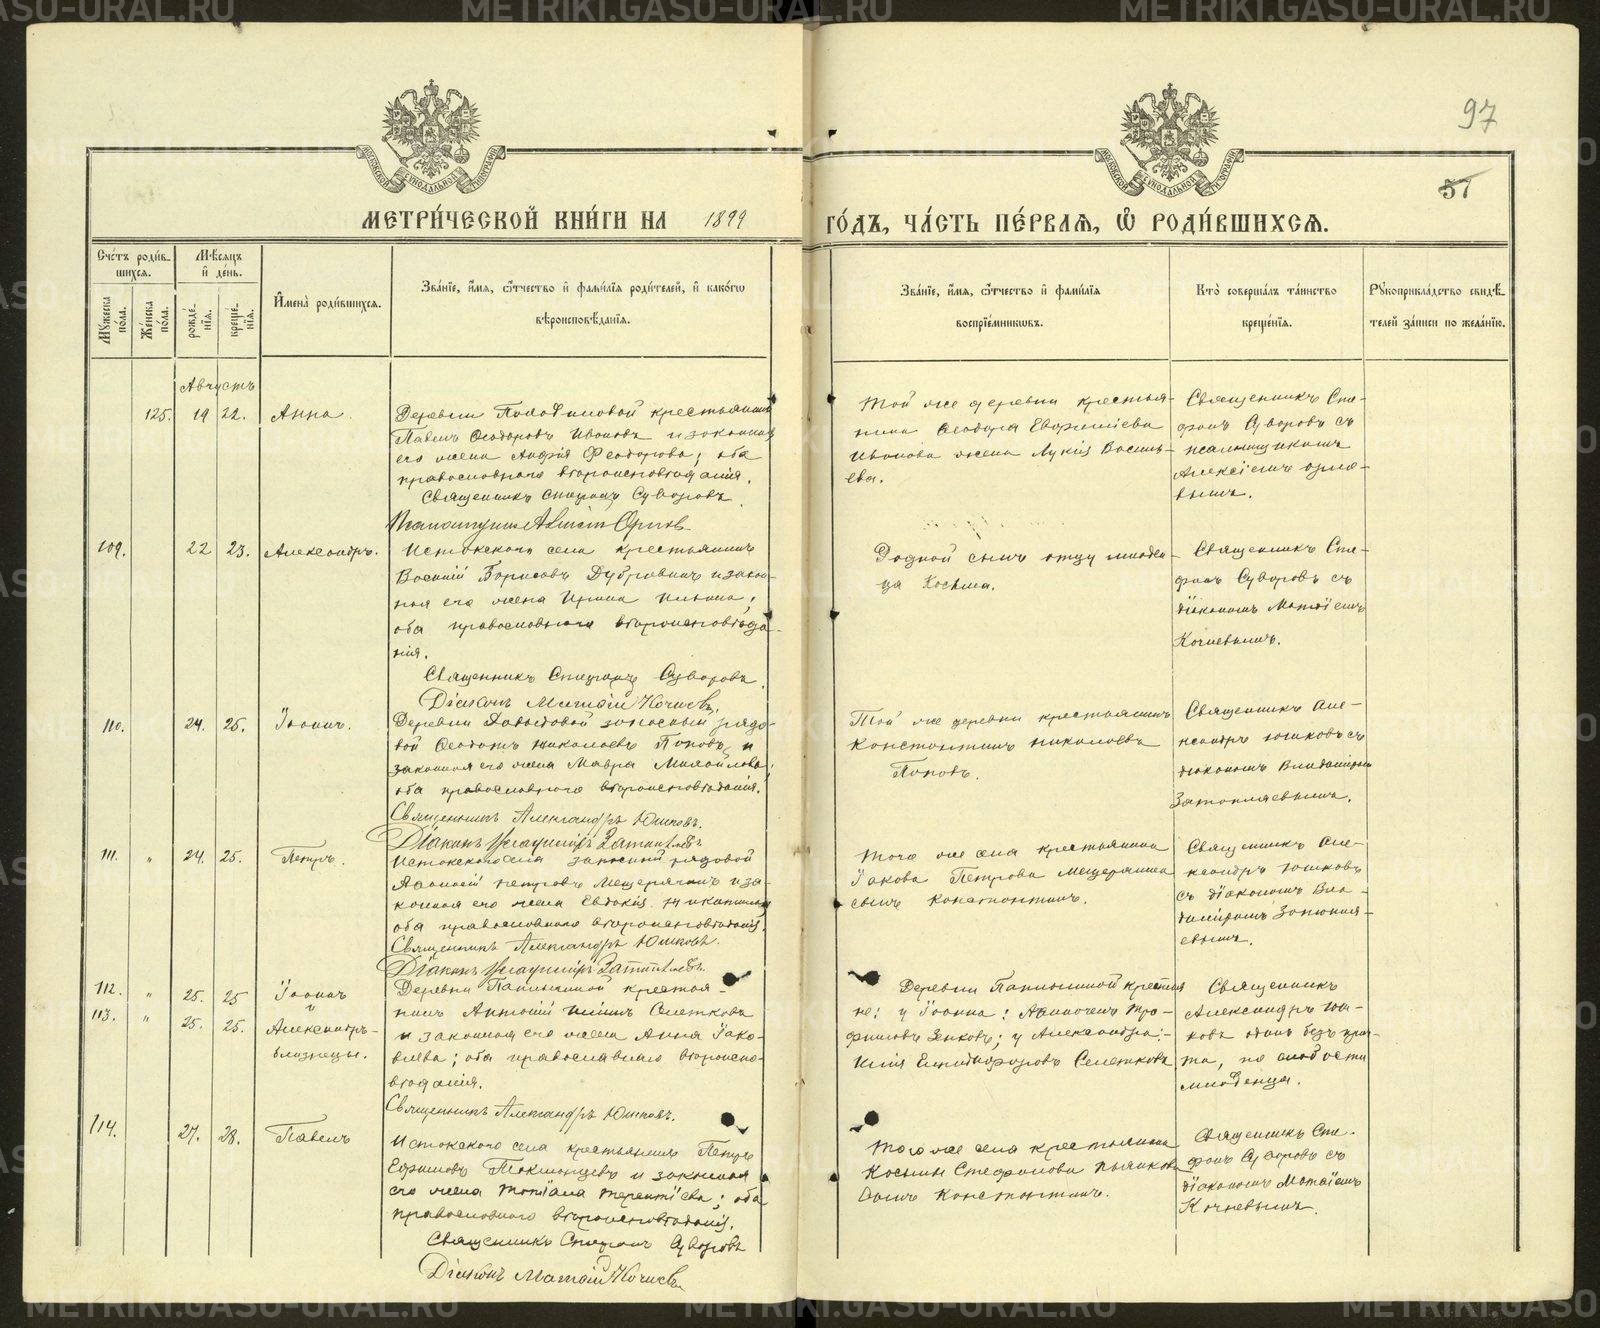 97
57
МЕТРИ́ЧЕСКОЙ КНИ́ГИ НА 1899 ГО́ДЪ, ЧА́СТЬ ПЕ́РВАЯ, Ѽ РОДИ́ВШИХСЯ.
Сче́тъ роди́вшихся.
Мѣ́сяцъ и҆ де́нь.
Мꙋ́жеска по́ла.
Же́нска по́ла.
рожде́нїѧ.
креще́нїѧ.
И҆мена̀ роди́вшихсѧ.
Зва́нїе, и҆́мѧ, ѻ҆́тчество и҆ фами́лїѧ роди́телей, и҆ како́гѡ
вѣроисповѣ́данїѧ.
Зва́нїе, и҆́мѧ, ѻ҆́тчество и҆ фами́лїѧ
воспрїе́мникѡвъ.
Кто̀ соверша́лъ та́инство
креще́нїѧ.
Рꙋкоприкла́дство свидѣ́телей за́писи по жела́нїю.
Августъ
125. 19 22. Анна.
Деревни крестьянинъ
Павелъ Ѳеодоровъ Ивановъ и законная
его жена Ѳеодорова; оба
православнаго вѣроисповѣданія.
Священникъ Стефанъ Суворовъ
Псаломщикъ Орловъ
Той же деревни крестья-
нина Ѳеодора
Иванова жена Лукія Василь-
ева.
Священникъ Сте-
фанъ Суворовъ съ
псаломщикомъ
Алексіемъ Орло-
вымъ.
109. 22 23. Александръ.
Истокскаго села крестьянинъ
Василій Борисовъ Дубровинъ и закон-
ная его жена Ирина Ильина;
оба православнаго вѣроисповѣда-
нія.
Священникъ Стефанъ Суворовъ.
Діаконъ Матѳій Кочневъ.
Родной сынъ отцу младен-
ца Косьма.
Священникъ Сте-
фанъ Суворовъ съ
діакономъ Матѳіемъ
Кочневымъ.
110. 24. 25. Іоаннъ.
Деревни запасный рядо-
вой Николаевъ Поповъ и
законная его жена Мавра Михайлова;
оба православнаго вѣроисповѣданія.
Священникъ Александръ Юшковъ.
Діаконъ Владиміръ
Той же деревни крестьянинъ
Константинъ Николаевъ
Поповъ.
Священникъ Але-
ксандръ Юшковъ съ
діакономъ Владиміромъ
111. " 24. 25. Петръ.
Истокскаго села запасный рядовой
Петровъ Мещерягинъ и за-
конная его жена Евдокія
оба православнаго вѣроисповѣданія.
Священникъ Александръ Юшковъ.
Діаконъ Владиміръ
Того же села крестьянина
Іакова Петрова Мещерягина
сынъ Константинъ.
Священникъ Але-
ксандръ Юшковъ
съ діакономъ Вла-
диміромъ
евымъ.
112. " 25. 25 Іоаннъ
и
113. " 25. 25. Александръ -
близнецы.
Деревни крестья-
нинъ Антоній Селетковъ
и законная его жена Анна Іако-
влева; оба православнаго вѣроиспо-
вѣданія.
Священникъ Александръ Юшковъ.
Деревни крестья-
не: у Іоанна: Тро-
фимовъ Зенковъ; у Александра:
Селетковъ
Священникъ
Александръ Юш-
ковъ одинъ безъ при-
чта, по слабости
младенца.
114. 27. 28. Павелъ
Истокскаго села крестьянинъ Петръ
Ефимовъ и законная
его жена Татіана Терентіева; оба
православнаго вѣроисповѣданія.
Священникъ Стефанъ Суворовъ
Діаконъ Матѳій Кочневъ
Того же села крестьянина
Косьмы Стефанова
сынъ Константинъ.
Священникъ Сте-
фанъ Суворовъ съ
діакономъ Матѳіемъ
Кочневымъ.
METRIKI.GASO-URAL.RU